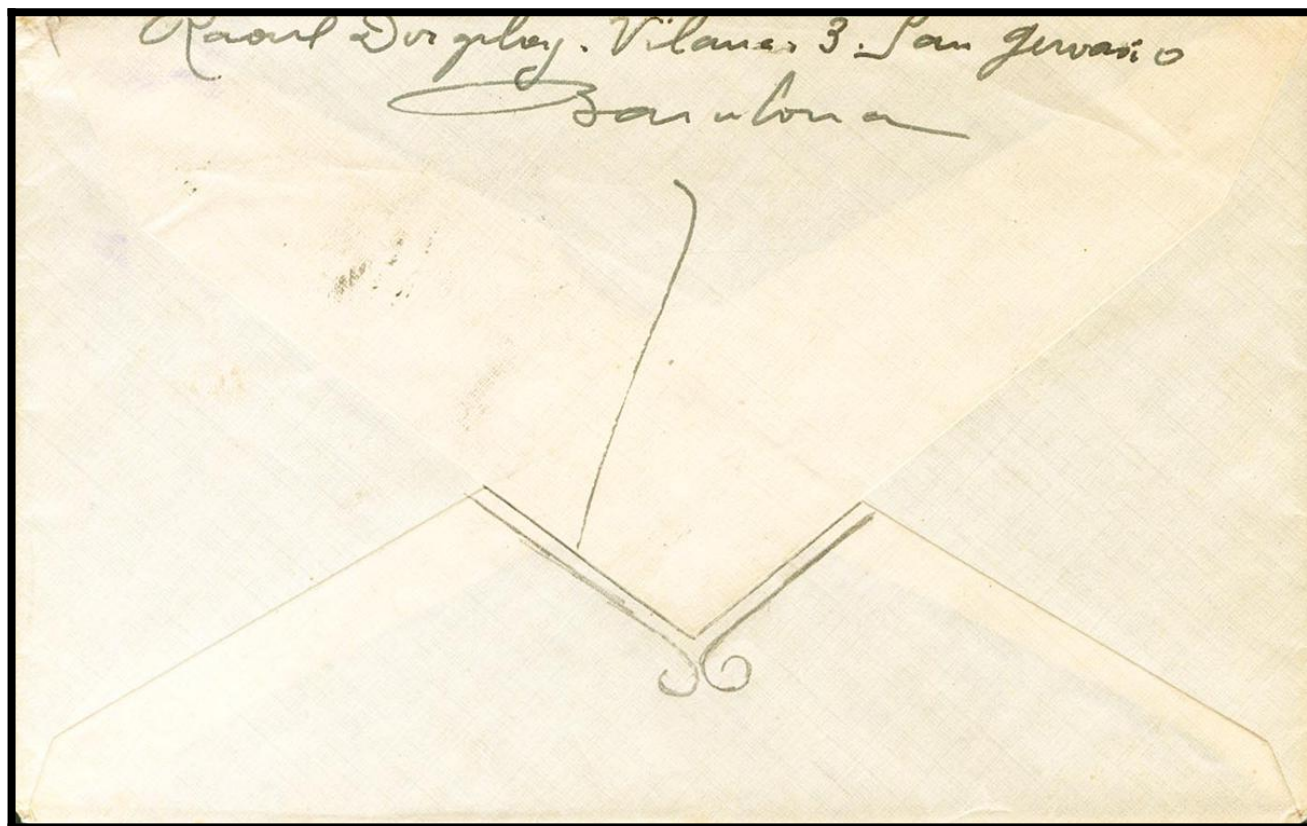 Raoul . Vilana. 3. San Gervasio
Barcelona